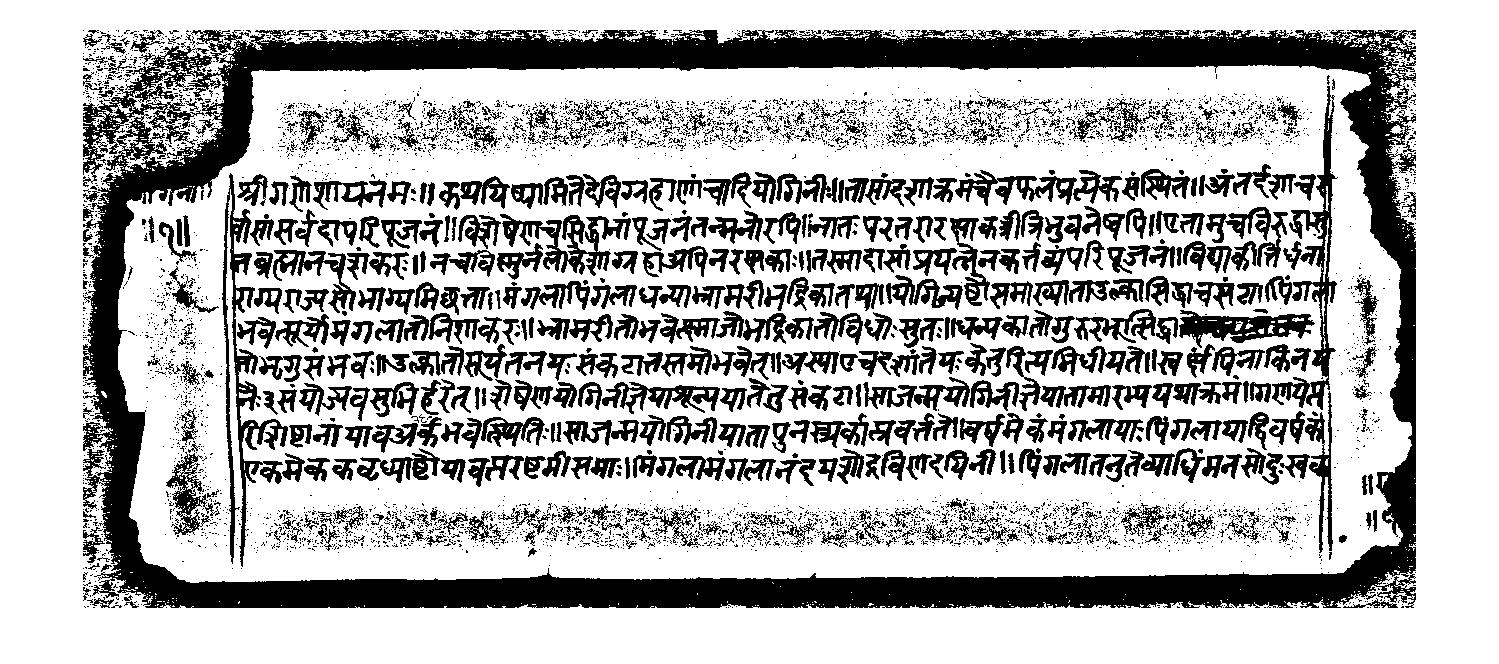 श्रीगणेशायनमः॥ कथयिष्यामितेदेविग्रहाणांचादियोगिनीः॥तासांदशाक्रमंचैवफलंप्रत्येकसंस्थितं॥अंतर्दशाच
र्सासांसर्वदापरिपूजनं॥विशेषेणचसिद्धानांपूजनंतन्मनोरपि॥नातः परतरारक्षाकर्त्रीत्रिभुवनेष्वपि॥एतामुचविरुद्धासु
तब्रह्मानचशंकरः॥ नचविस्मुर्नलोकेशाग्रहाअपिनरक्षकाः॥तस्मादासांप्रयत्नेनकर्त्तव्यंपरिपूजनं॥विद्याकीर्त्तिर्धना
राग्यराज्यसौभाग्यमिछता॥मंगलापिंगलाधन्याभ्रामरीभद्रिकातथा॥योगिन्यष्टौसमाख्याताउल्कासिद्धाचसंकटा॥पिंगला
भवेत्सूर्योमंगलातोनिशाकरः॥भ्रामरीतोभवेत्क्ष्माजोभद्रिकातोविधोःसुतः॥धन्यकातोगुरुरभूत्सिद्धा
तोभृगुसंभवः॥उल्कातोसूर्यतनयः संकटातस्तमोभवेत्॥अस्याएवदशांतेयः केतुरित्यभिधीयते॥स्वर्क्षंपिनाकिनय
नैः३संयोज्यवसुभिर्हरेत्॥शेषेणयोगिनीज्ञेयाशून्यपातेतुसंकटा॥साजन्मयोगिनीज्ञेयातामारभ्ययथाक्रमं॥गणयेत्प
रिशिष्टानांयावअर्क्षंभवेत्स्थितिः॥साजन्मयोगिनीयातापुनस्त्र्यर्कात्प्रवर्त्तते॥वर्षमेकंमंगलायाःपिंगलायाद्विवर्षकं
एकमेककवृध्याष्टौयावत्सरष्टमीसमाः॥मंगलामंगलानंदयशोद्रविणदायिनी॥पिंगलातनुतेव्याधिंमनसोदुःख
॥१॥